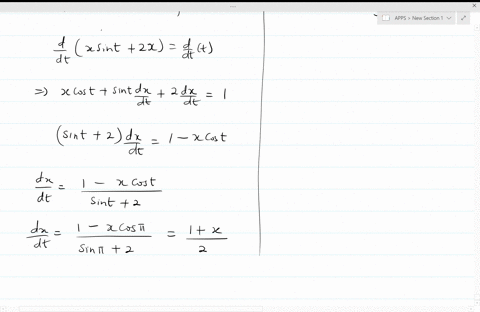 APPS > New Section 1
d/dt (x sint + 2x) = d/dt (t)
⇒ x cost + sint dx/dt + 2 dx/dt = 1
(sint + 2) dx/dt = 1 − x cost
dx/dt = 1 − x cost / sint + 2
dx/dt = 1 − x cosπ / sinπ + 2 = 1 + x / 2